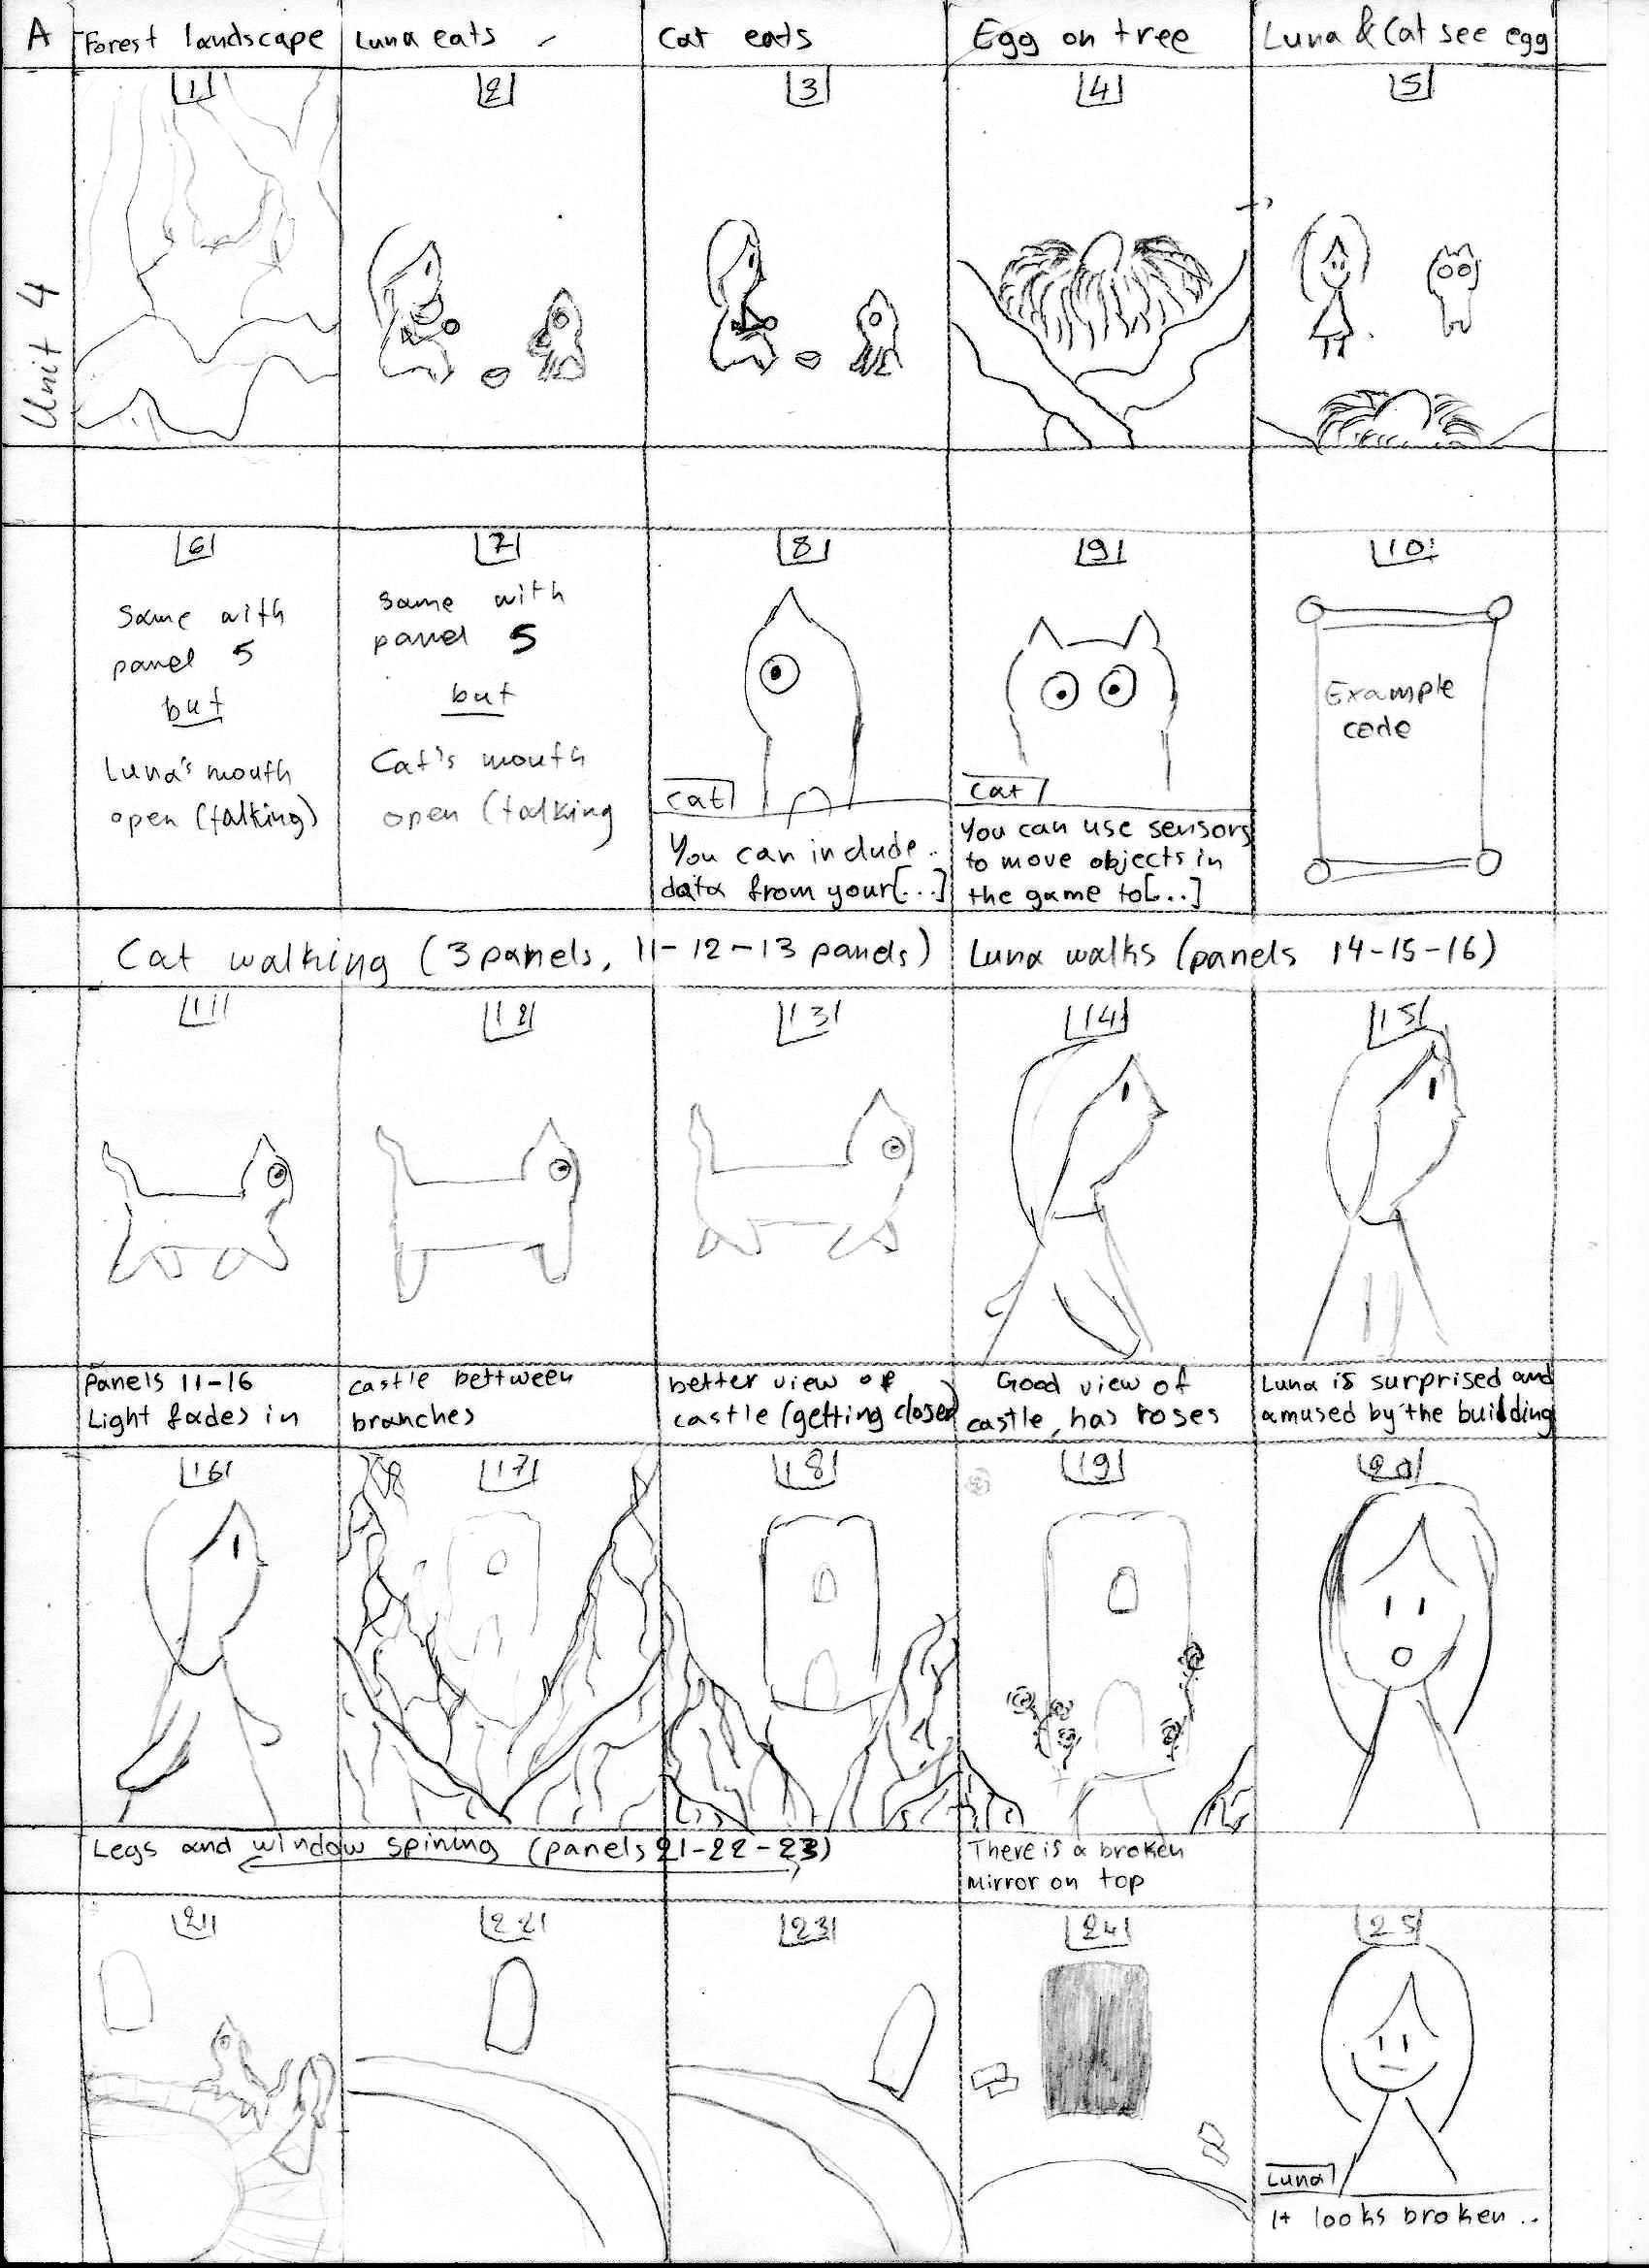 A
Forest landscape
Luna eats
Cat eats
Egg on tree
Luna & Cat see egg
Unit 4
1
2
3
4
5
6
7
8
9
10
Same with
panel 5
but
Luna's mouth
open (talking)
same with
panel 5
but
Cat's mouth
open (talking
Cat
You can include..
data from your[...]
Cat
You can use sensors
to move objects in
the game to[...]
Example
code
Cat walking (3 panels, 11-12-13 panels)
Luna walks (panels 14-15-16)
11
12
13
14
15
Panels 11-16
Light fades in
castle bettween
branches
better view of
castle (getting closer)
Good view of
castle, has roses
Luna is surprised and
amused by the building
16
17
18
19
20
Legs and window spining (panels 21-22-23)
There is a broken
mirror on top
21
22
23
24
25
Luna
It looks broken..